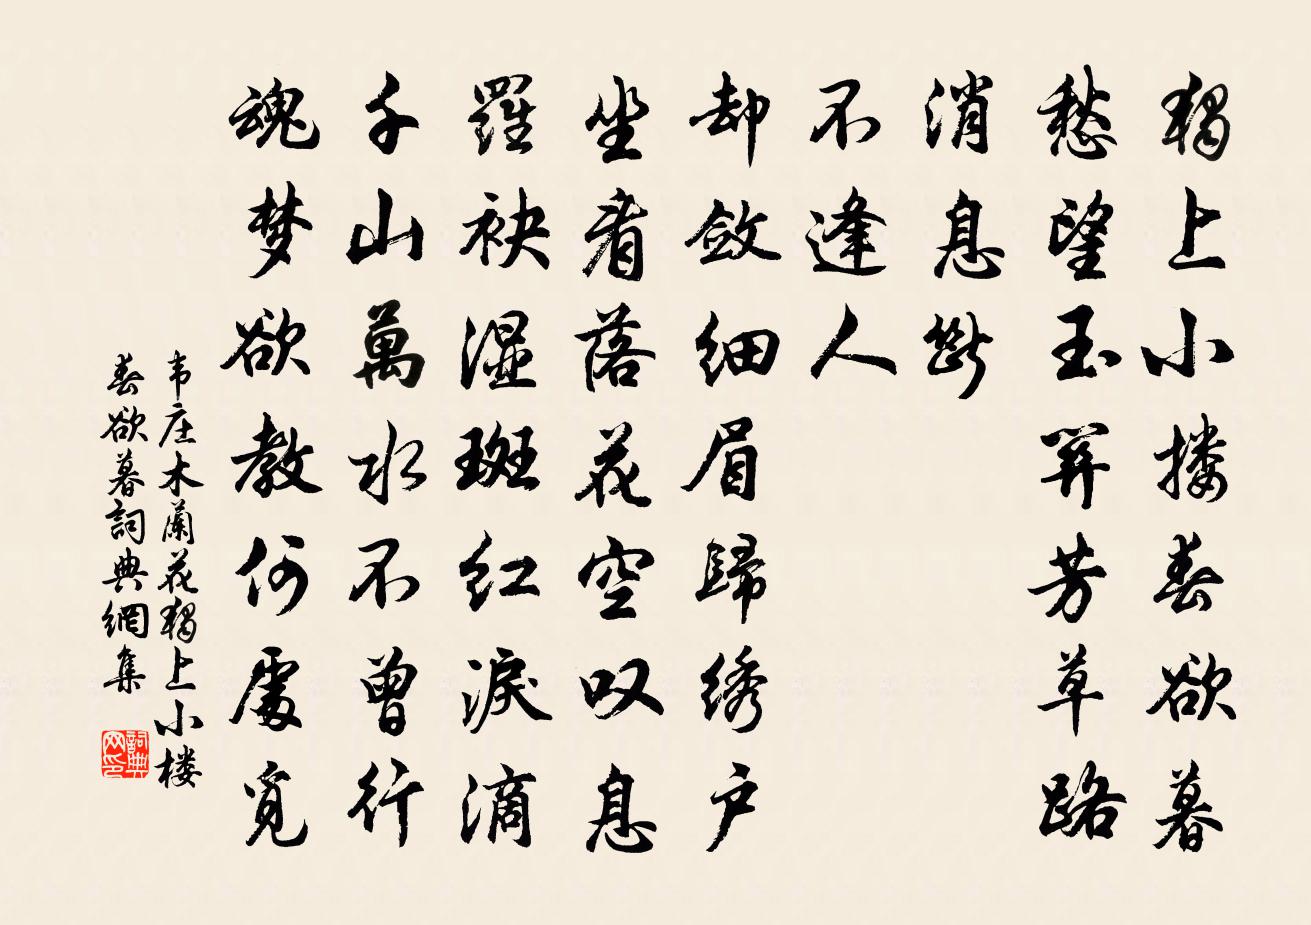 獨上小楼春欲暮
愁望玉関芳草路
消息斷
不逢人
却敛细眉歸绣户
坐看落花空叹息
羅袂湿斑红淚滴
千山萬水不曾行
魂梦欲教何處覓
韦庄木蘭花獨上小楼
春欲暮詞典網集
詞典
网印